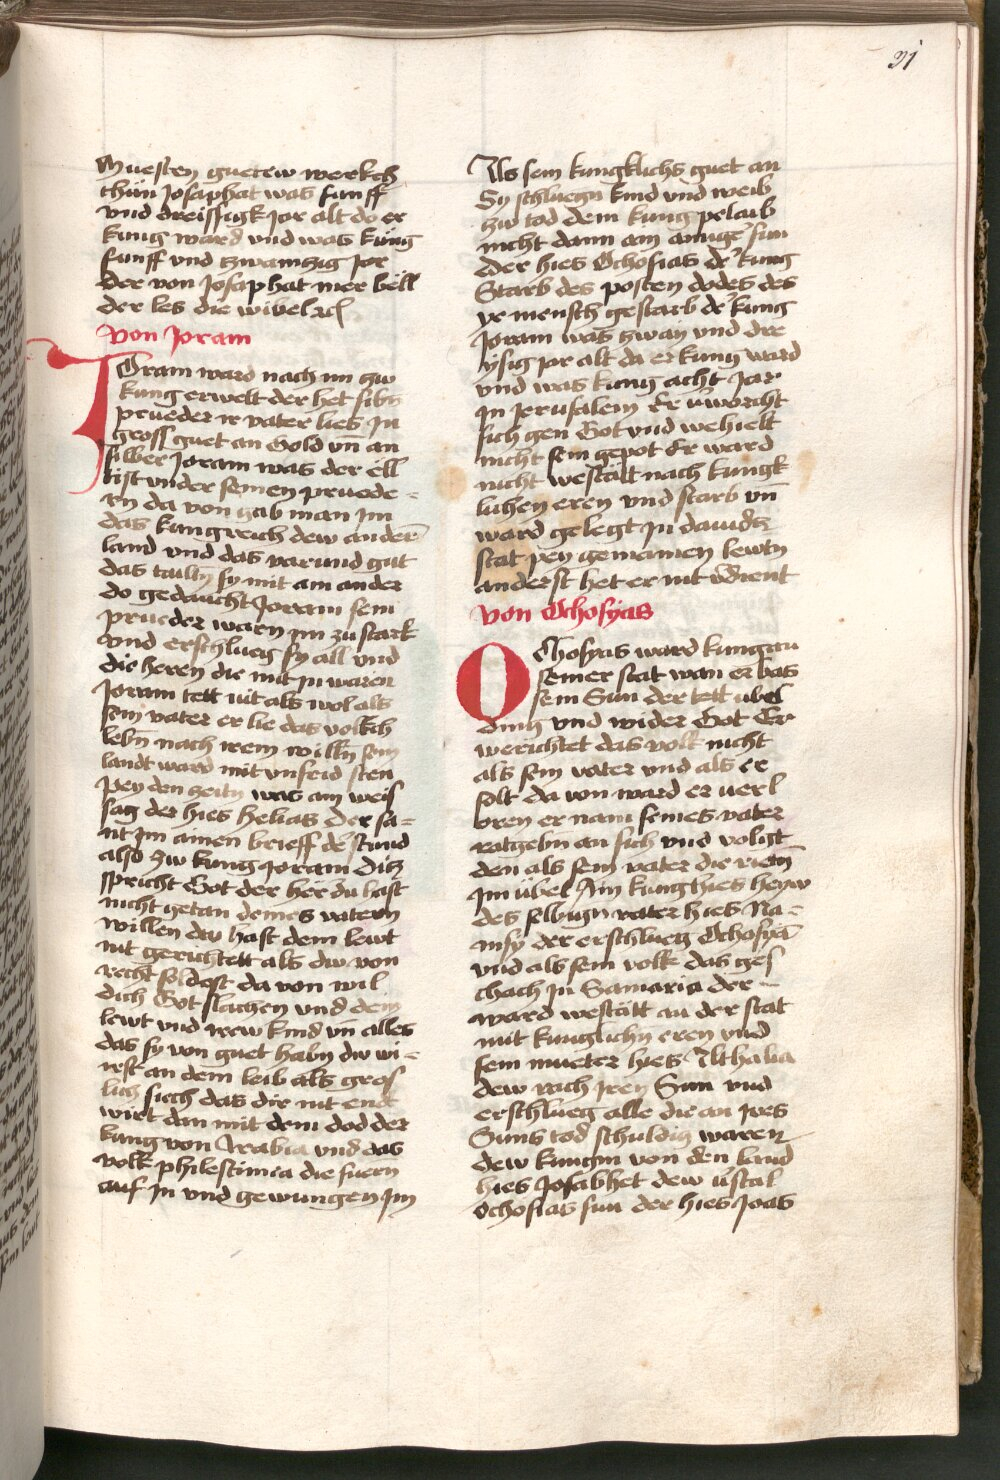 31
Muesten guetew werkch
thün Josaphat was funff
vnd dreissigk jor alt do er
kung ward vnd was küng
funff vnd zwainzig jor
der von Josaphat mer bell
der les die wibel
von Joram
JOram ward nach im zw
kung erwelt der het sibn
prueder ir vater lies in
gross guet an Gold vn̄ an
silber Joram was der ell
tist vnder seinen pruede=
rn da von gab man im
das kungreich dew ander
land vnd das varund gut
das tailtn sy mit am ander
do gedaucht Joram sein
prueder warn im zu stark
vnd erschlueg sy all vnd
die heren die mit in waren
Joram tett nit als wol als
sein vater er lie das volkch
lebn nach irem willn sein
landt ward mit vnfrid sten
pey den zeitn was ain weis
sag der hies Helias der sa=
nt im ainen brieff de stund
also zw kung Joram Ditz
spricht Got der her du hast
nicht getan deines vatern
willen dw hast dem lewt
nit gerichtett als dw von
recht soldest da von wil
dich Got slachen vnd dein
lewt vnd irew kind vn alles
das sy von guet habn dw wi=
rst an dem leib als gros
lich siech das dir nit end
wirt dan mit dem dod der
kung von Arabia vnd das
volk philestimia die fuern
auf in vnd gewungen im
Als sein kungklichs guet an
Sy schluegn kind vnd weib
zw tod dem kung pelaib
nicht dann ain ainiger sun
der hies Ochosias der kung
Starb des posten dodes des
ye mensch gestarb der kung
Joram was zway vnd dre
ysig jor alt da er kung ward
vnd was kung acht Jar
in Jerusalem Er v̈worcht
sich gen Got vnd wehielt
nicht sein gepot Er ward
nicht westätt nach kungk
lichen eren vnd starb vn̄
ward gelegt in dauidz
stat pey gemainen lewtn
anderst het er nit v̈dient
von Ochosyas
OChosyas ward kung an
seiner stat wan er was
sein Sun der tett übel
ding vnd wider Got Er
werichtet das volk nicht
als sein vater vnd als er
solt da von ward er verl
oren er nam seines vater
ratgebn an sich vnd volgt
den als sein vater die rietn
im übel Ain kung hies heyw
des selbign vater hies Na=
msy der erschlueg Ochosyā
vnd als sein volk das ges
chach in Samaria der
ward westätt an der stat
mit kunglichn eren vnd
sein mueter hies Athalia
dew rach iren Sun vnd
erschlueg alle die an ires
Suns tod schuldig waren
dew kungin von den land
hies Josabhet dew v̈stal
Ochosias sun der hies Joas